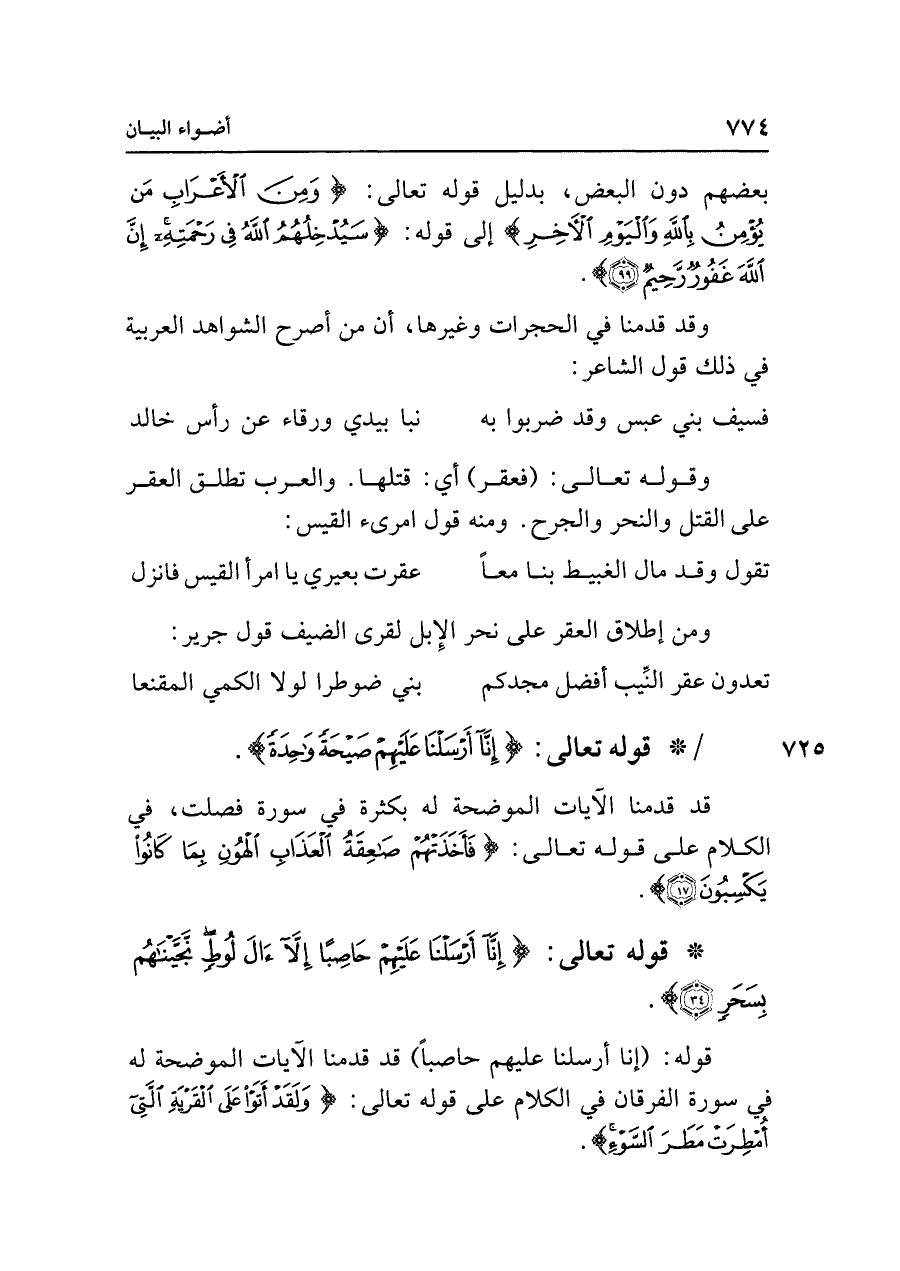 ٧٧٤ أضواء البيان
بعضهم دون البعض، بدليل قوله تعالى: ﴿ وَمِنَ ٱلْأَعْرَابِ مَن
يُؤْمِنُ بِٱللَّهِ وَٱلْيَوْمِ ٱلْآخِرِ ﴾ إلى قوله: ﴿ سَيُدْخِلُهُمُ ٱللَّهُ فِي رَحْمَتِهِۦٓۚ إِنَّ
ٱللَّهَ غَفُورٌ رَّحِيمٌ ٩٩ ﴾ .
وقد قدمنا في الحجرات وغيرها، أن من أصرح الشواهد العربية
في ذلك قول الشاعر:
فسيف بني عبس وقد ضربوا به نبا بيدي ورقاء عن رأس خالد
وقوله تعالى: (فعقر) أي: قتلها. والعرب تطلق العقر
على القتل والنحر والجرح. ومنه قول امرىء القيس:
تقول وقد مال الغبيط بنا معاً عقرت بعيري يا امرأ القيس فانزل
ومن إطلاق العقر على نحر الإِبل لقرى الضيف قول جرير:
تعدون عقر النِّيب أفضل مجدكم بني ضوطرا لولا الكمي المقنعا
٧٢٥ / * قوله تعالى: ﴿ إِنَّآ أَرْسَلْنَا عَلَيْهِمْ صَيْحَةً وَٰحِدَةً ﴾ .
قد قدمنا الآيات الموضحة له بكثرة في سورة فصلت، في
الكلام على قوله تعالى: ﴿ فَأَخَذَتْهُمْ صَٰعِقَةُ ٱلْعَذَابِ ٱلْهُونِ بِمَا كَانُوا۟
يَكْسِبُونَ ١٧ ﴾ .
* قوله تعالى: ﴿ إِنَّآ أَرْسَلْنَا عَلَيْهِمْ حَاصِبًا إِلَّآ ءَالَ لُوطٍۖ نَّجَّيْنَٰهُم
بِسَحَرٍ ٣٤ ﴾ .
قوله: (إنا أرسلنا عليهم حاصباً) قد قدمنا الآيات الموضحة له
في سورة الفرقان في الكلام على قوله تعالى: ﴿ وَلَقَدْ أَتَوْا۟ عَلَى ٱلْقَرْيَةِ ٱلَّتِىٓ
أُمْطِرَتْ مَطَرَ ٱلسَّوْءِۚ ﴾ .